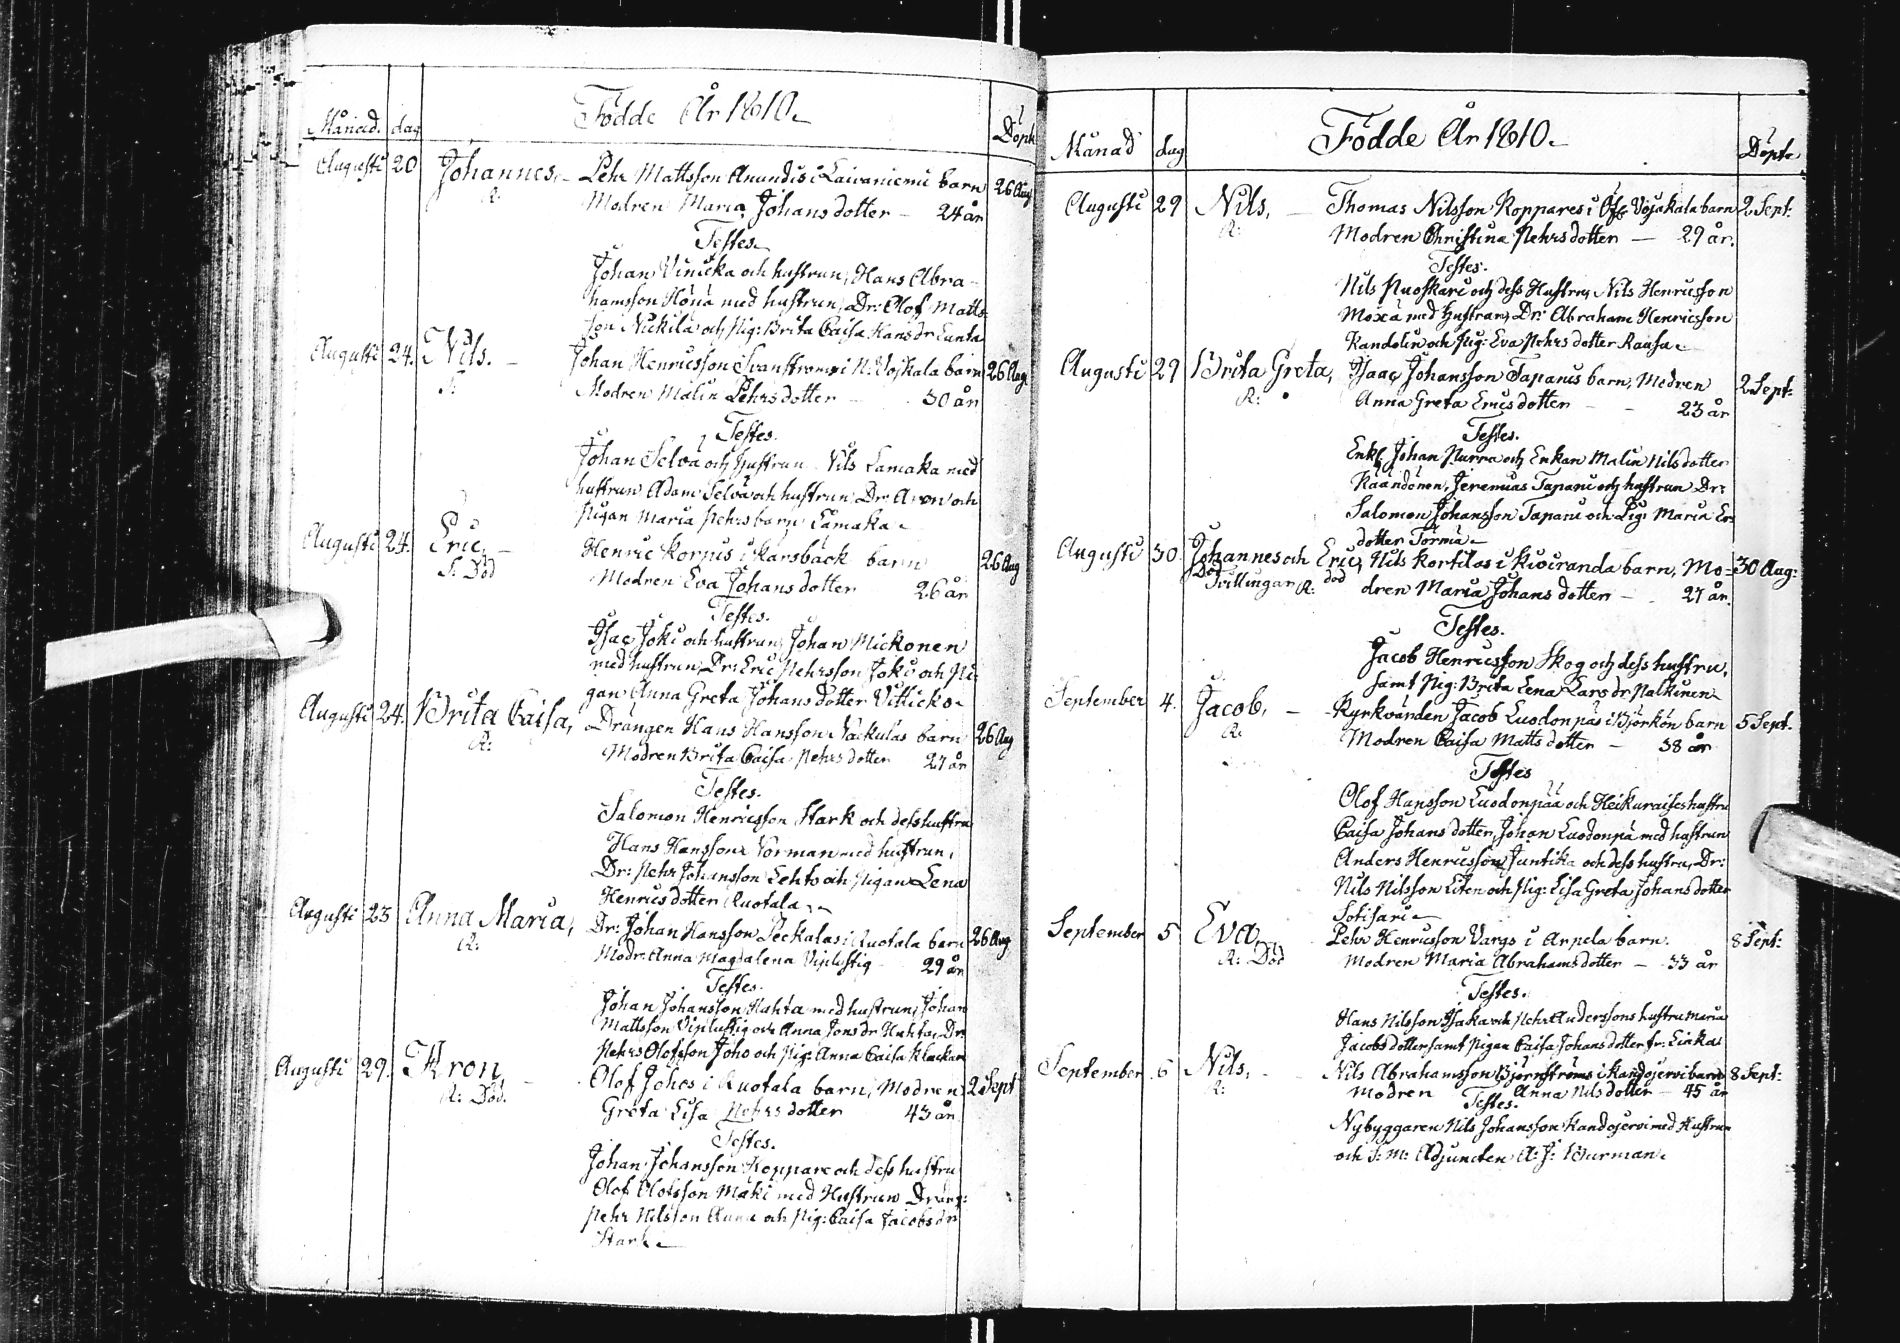 Födde År 1810.
Månad. dag Döpte
Augusti 20 Johannes, Pehr Mattsson Anundis i Laivaniemi barn 26 Aug
R: Modren Maria Johansdotter 24 år
Testes.
Johan Vinicka och hustrun, Hans Abra-
hamsson Höna med hustrun, Dr: Olof Matts-
son Nickilä och Pig: Brita Caisa Hansdr
Augusti 24. Nils. Johan Henricsson Svanströms i N: Vojkala barn 26 Aug
Modren Malin Pehrsdotter 30 år
Testes.
Johan Selvä och hustrun Nils Lamaka med
hustrun Adam Selvä och hustrun Dr: Aron och
Pigan Maria Pehrs barn Lamaka
Augusti 24. Eric, Henric Korpus i Karsbäck barn 26 Aug
Död Modren Eva Johansdotter 26 år
Testes.
Isac Joki och hustrun, Johan Mickonen
med hustrun, Dr: Eric Pehrsson Joki och Pi-
gan Anna Greta Johansdotter
Augusti 24. Brita Caisa, Drängen Hans Hansson Vackulas barn 26 Aug
R: Modren Brita Caisa Pehrsdotter 27 år
Testes.
Salomon Henricsson Stark och dess hustru
Hans Hansson Vorman med hustrun,
Dr: Pehr Johansson Lehto och Pigan Lena
Henricsdotter Ruotala
Augusti 23 Anna Maria, Dr: Johan Hansson Peckalas i Ruotala barn 26 Aug
R: Modr: Anna Magdalena Viplustig 29 år
Testes.
Johan Johansson Hahta med hustrun, Johan
Mattsson Viplustig och Anna Jonsdr Huhta, Dr:
Pehr Olofsson Joho och Pig: Anna Caisa
Augusti 29. Aron Olof Johos i Ruotala barn, Modren 2 Sept
R: Död. Greta Lisa Pehrsdotter 43 år
Testes.
Johan Johansson Koppare och dess hustru
Olof Olofsson Mäki med Hustrun Dräng:
Pehr Nilsson Anna och Pig: Caisa Jacobsdr
Stark
Födde År 1810.
Månad dag Döpte
Augusti 29 Nils, Thomas Nilsson Koppares i Öfr Vojakala barn 2 Sept:
R: Modren Christina Pehrsdotter 29 år.
Testes.
Nils Puoskari och dess Hustru, Nils Henricsson
Moxä med Hustrun, Dr: Abraham Henricsson
Kandelin och Pig: Eva Pehrsdotter Rausa
Augusti 29 Brita Greta, Isaac Johansson Tapanis barn, Modren 2 Sept:
R: Anna Greta Ericsdotter 23 år
Testes.
Enkl: Johan Purra och Enkan Malin Nilsdotter
Käandönen, Jeremias Tapani och hustrun Dr:
Salomon Johansson Tapani och Pig: Maria Ers
dotter Törmä
Augusti 30. Johannes och Eric, Nils Kortilas i Kiviranda barn, Mo- 30 Aug:
Död Tvillingar R: död dren Maria Johansdotter 27 år.
Testes.
Jacob Henricsson Skog och dess hustru,
samt Pig: Brita Lena Larsdr Palkinen
September 4. Jacob, Kyrkvärden Jacob Luodonpäs i Björkön barn 5 Sept:
R: Modren Caisa Mattsdotter 38 år
Testes
Olof Hansson Luodonpää och Heikuraises hustru
Caisa Johansdotter, Johan Luodonpä med hustrun
Anders Henricsson Juntika och dess hustru, Dr:
Nils Nilsson Liten och Pig: Lisa Greta Johansdotter
Sotisari
September 5 Eva Pehr Henricsson Vargs i Arpela barn. 8 Sept:
R: Död Modren Maria Abrahamsdotter 33 år
Testes.
Hans Nilsson Isaka och Pehr Anderssons hustru Maria
Jacobsdotter samt Pigan Caisa Johansdotter fr:
September 6 Nils, Nils Abrahamsson Björnströms i Kandojervi barn 8 Sept:
R: Modren Anna Nilsdotter 45 år
Testes.
Nybyggaren Nils Johansson Kandojervi med Hustrun
och S: M: Adjuncten A: J: Burman.